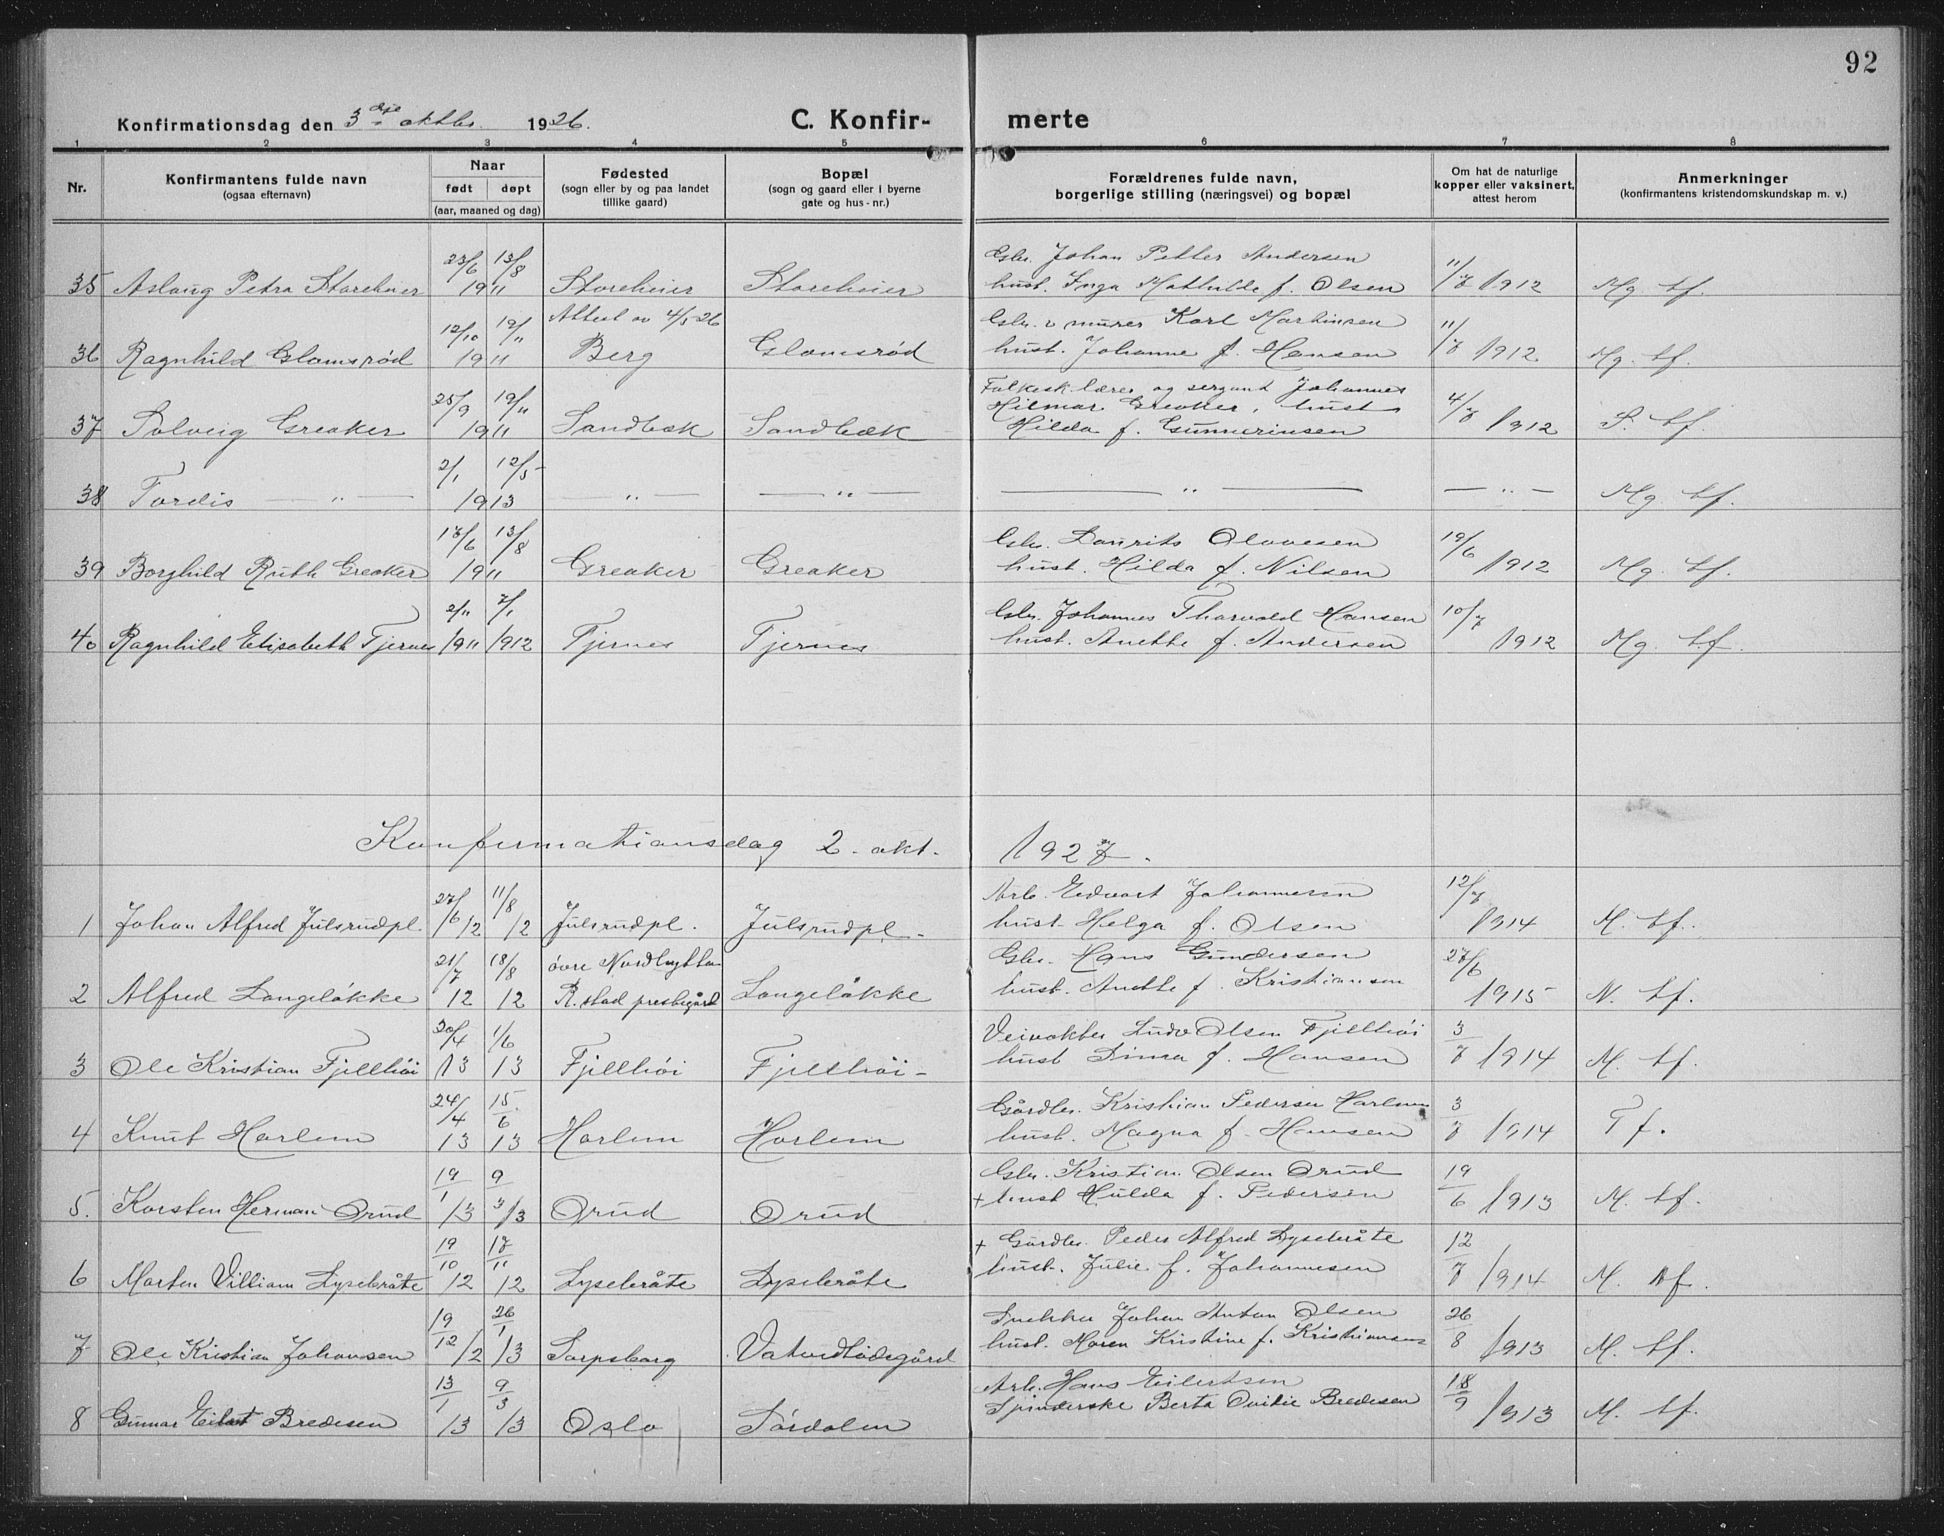 92
Konfirmationsdag den 3 dje oktbr. 1926. C. Konfir- merte
1 2 3 4 5 6 7 8
Nr. Konfirmantens fulde navn (ogsaa efternavn) Naar født døpt (aar, maaned og dag) Fødested (sogn eller by og paa landet tillike gaard) Bopæl (sogn og gaard eller i byerne gate og hus-nr.) Forældrenes fulde navn, borgerlige stilling (næringsvei) og bopæl Om hat de naturlige kopper eller vaksinert, attest herom Anmerkninger (konfirmantens kristendomskundskap m. v.)
23/6 13/8 Gbr. Johan Petter Andersen 11/7
35 Aslaug Petra Storeheier 1911 Storeheier Storeheier hust. Inga Mathilde f. Olsen 1912 Mg. tf.
12/10 19/11 Attest av 4/5 26 Gbr. & murer Karl Martinsen 11/7
36 Ragnhild Glomsrød 1911 Berg Glomsrød hust. Johanne f. Hansen 1912 Mg. tf.
25/9 19/11 Folkesk.lærer og sergant Johannes
Hilmar Greaker, hust 4/7
37 Solveig Greaker 1911 Sandbæk Sandbæk Hilda f. Gunnerinsen 1912 S. tf.
2/1 12/5
38 Tordis — " — 1913 — " — — " — — " — — " — Mg. tf.
17/6 13/8 Gbr. Laurits Olavesen 19/6
39 Borghild Ruth Greaker 1911 Greaker Greaker hust. Hilda f. Nilsen 1912 Mg. tf.
2/11 7/1 Gbr. Johannes Thorvald Hansen 10/7
40 Ragnhild Elisabeth Tjernes 1911 1912 Tjernes Tjernes hust. Anette f. Andersen 1912 Mg. tf.
Konfirmationsdag 2. okt. 1927.
27/6 11/8 Arb. Edvart Johannesen 12/7
1 Johan Alfred Julsrudpl. 12 12 Julsrudpl. Julsrudpl. hust. Helga f. Olsen 1914 M. tf.
21/7 18/8 øvre Nordbytta Gbr. Hans Gundersen 27/6
2 Alfred Langeløkke 12 12 R.stad prestegård Langeløkke hust. Anette f. Kristiansen 1915 N. tf.
30/4 1/6 Veivokter Ludv Olsen Fjellhöi 3/7
3 Ole Kristian Fjellhöi 13 13 Fjellhöi Fjellhöi hust f. Hansen 1914 M. tf.
24/4 15/6 Gårdbr. Kristian Pedersen Harlem 3/7
4 Knut Harlem 13 13 Harlem Harlem hust. Magna f. Hansen 1914 T f.
19/1 9/3 Gbr. Kristian Olsen Orud 19/6
5. Korsten Herman Orud 13 13 Orud Orud + hust Hulda f. Pedersen 1913 M. tf.
19/10 17/11 + Gårdbr. Peder Alfred Lysebråte 12/7
6 Morten Villiam Lysebråte 12 12 Lysebråte Lysebråte hust. Julie f. Johannesen 1914 M. tf.
19/12 26/1 Snekker Johan Anton Olsen 26/8
7 Ole Kristian Johansen 12 13 Sarpsborg Vatvedtødegård hust. Maren Kristine f. Kristiansen 1913 M. tf.
13/1 9/3 Arb. Hans Eilertsen 18/9
8 Gunnar Eilert Bredesen 13 13 Oslo Sørdalen Spinderske Berta Bredesen 1913 M. tf.